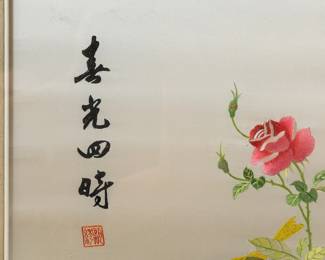 春光四時